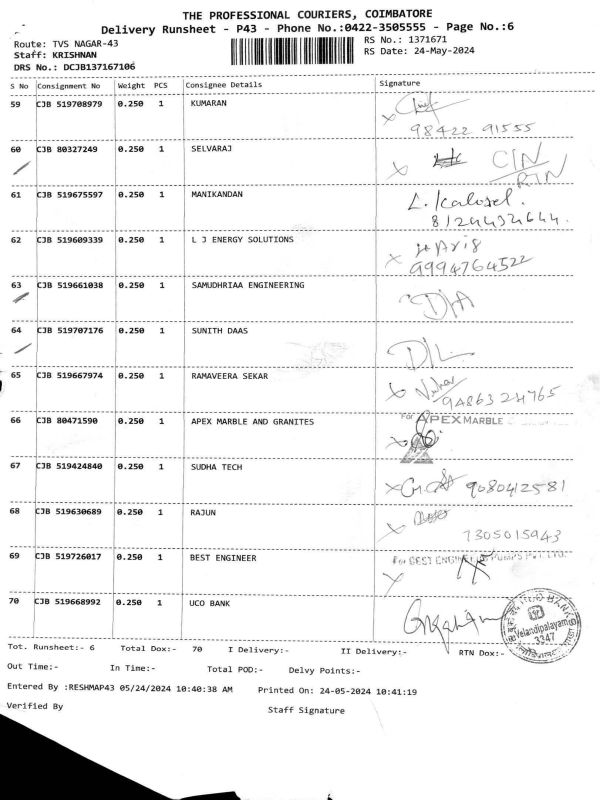 THE PROFESSIONAL COURIERS, COIMBATORE
Delivery Runsheet - P43 - Phone No.:0422-3505555 - Page No.:6
Route: TVS NAGAR-43 RS No.: 1371671
Staff: KRISHNAN RS Date: 24-May-2024
DRS No.: DCJB137167106
S No Consignment No Weight PCS Consignee Details Signature
59 CJB 519708979 0.250 1 KUMARAN
98422 91555
60 CJB 80327249 0.250 1 SELVARAJ CIN
RTN
61 CJB 519675597 0.250 1 MANIKANDAN
8124432644.
62 CJB 519609339 0.250 1 L J ENERGY SOLUTIONS
9994764522
63 CJB 519661038 0.250 1 SAMUDHRIAA ENGINEERING D/A
64 CJB 519707176 0.250 1 SUNITH DAAS D/L
65 CJB 519667974 0.250 1 RAMAVEERA SEKAR
9486324765
66 CJB 80471590 0.250 1 APEX MARBLE AND GRANITES For APEX MARBLE
67 CJB 519424840 0.250 1 SUDHA TECH 9080412581
68 CJB 519630689 0.250 1 RAJUN
7305015943
69 CJB 519726017 0.250 1 BEST ENGINEER For BEST ENGINEERS PUMPS PVT. LTD.
70 CJB 519668992 0.250 1 UCO BANK
Yelandipalayam
3347
Tot. Runsheet:- 6 Total Dox:- 70 I Delivery:- II Delivery:- RTN Dox:-
Out Time:- In Time:- Total POD:- Delvy Points:-
Entered By :RESHMAP43 05/24/2024 10:40:38 AM Printed On: 24-05-2024 10:41:19
Verified By Staff Signature